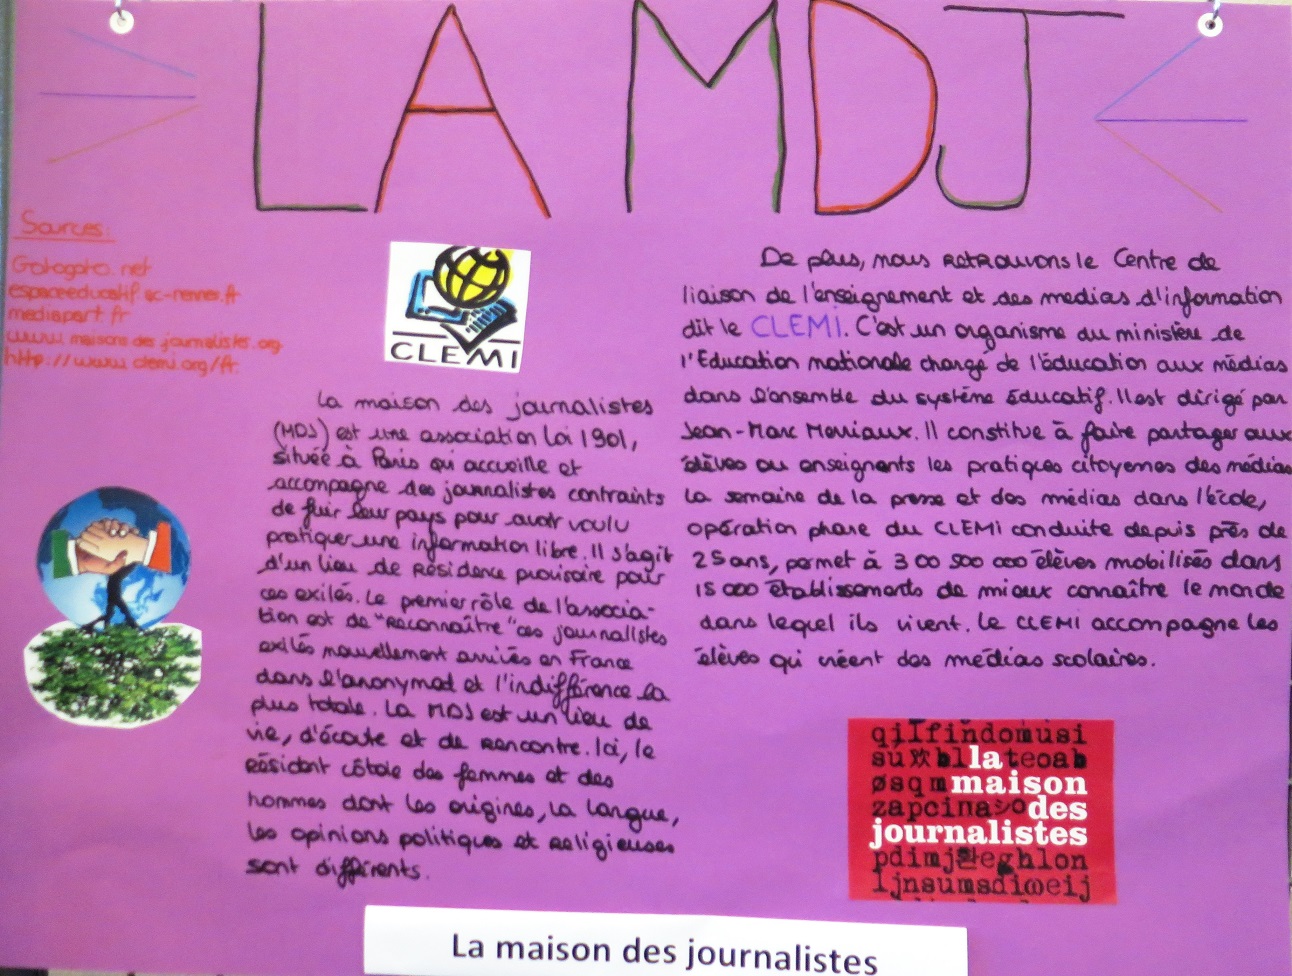 LA MDJ
Sources:
Gotogoto.net
espaceeducatif ac-rennes.fr
mediapart fr
www maisons des journalistes.org
http://www.clemi.org/fr
CLEMI
La maison des journalistes
(MDJ) est une association loi 1901,
située à Paris qui accueille et
accompagne des journalistes contraints
de fuir leur pays pour avoir voulu
pratiquer une information libre. Il s'agit
d'un lieu de Résidence provisoire pour
ces exilés. Le premier rôle de l'associa-
tion est de "Reconnaître" ces journalistes
exilés nouvellement arrivés en France
dans l'anonymat et l'indifférence la
plus totale. La MDJ est un lieu de
vie, d'écoute et de Rencontre. Ici, le
Résident côtoie des femmes et des
hommes dont les origines, la langue,
les opinions politiques et Religieuses
sont différents.
De plus, nous retrouvons le Centre de
liaison de l'enseignement et des medias d'information
dit le CLEMI. C'est un organisme du ministère de
l'Education nationale chargé de l'éducation aux médias
dans l'ensemble du système éducatif. Il est dirigé par
Jean-Marc Merriaux. Il constitue à faire partager aux
élèves ou enseignants les pratiques citoyennes des médias
La semaine de la presse et des médias dans l'école,
opération phare du CLEMI conduite depuis près de
25 ans, permet à 3 00 500 000 élèves mobilisés dans
15 000 établissements de mieux connaître le monde
dans lequel ils vivent. Le CLEMI accompagne les
élèves qui créent des médias scolaires.
qilfindomusi
bl la teoab
øsqm maison
zapcina des
journalistes
pdimj eghlon
ljnsumsdiweij
La maison des journalistes